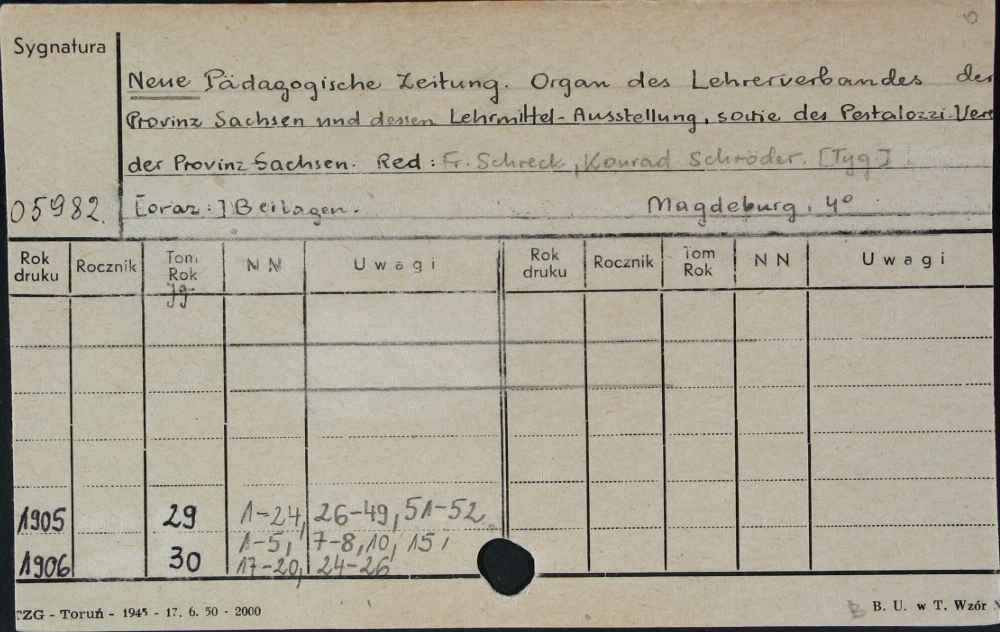 Sygnatura
Neue Pädagogische Zeitung. Organ des Lehrerverbandes der
Provinz Sachsen und dessen Lehrmittel-Ausstellung, sowie des Pestalozzi-Vere
der Provinz Sachsen. Red: Fr. Schreck, Konrad Schröder. [Tyg.]
05982. [oraz:] Beilagen. Magdeburg. 4°
Rok druku Rocznik Tom Rok Jg NN Uwagi Rok druku Rocznik Tom Rok NN Uwagi
1905 29 1-24, 26-49, 51-52.
1-5, 7-8, 10, 15,
1906 30 17-20, 24-26
TZG - Toruń - 1945 - 17. 6. 50 - 2000 B. U. w T. Wzór